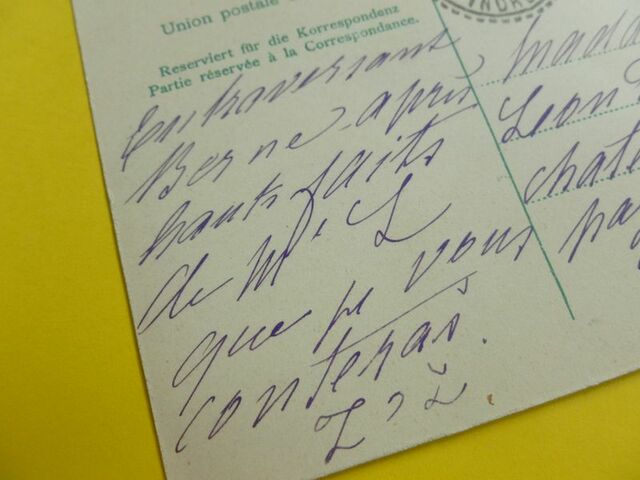 Union postale
INDRE
Reserviert für die Korrespondenz
Partie réservée à la Correspondance.
En traversant
Berne après
hauts faits
de Mr L
que je vous
conterai.
Mada
Leon
chate
par